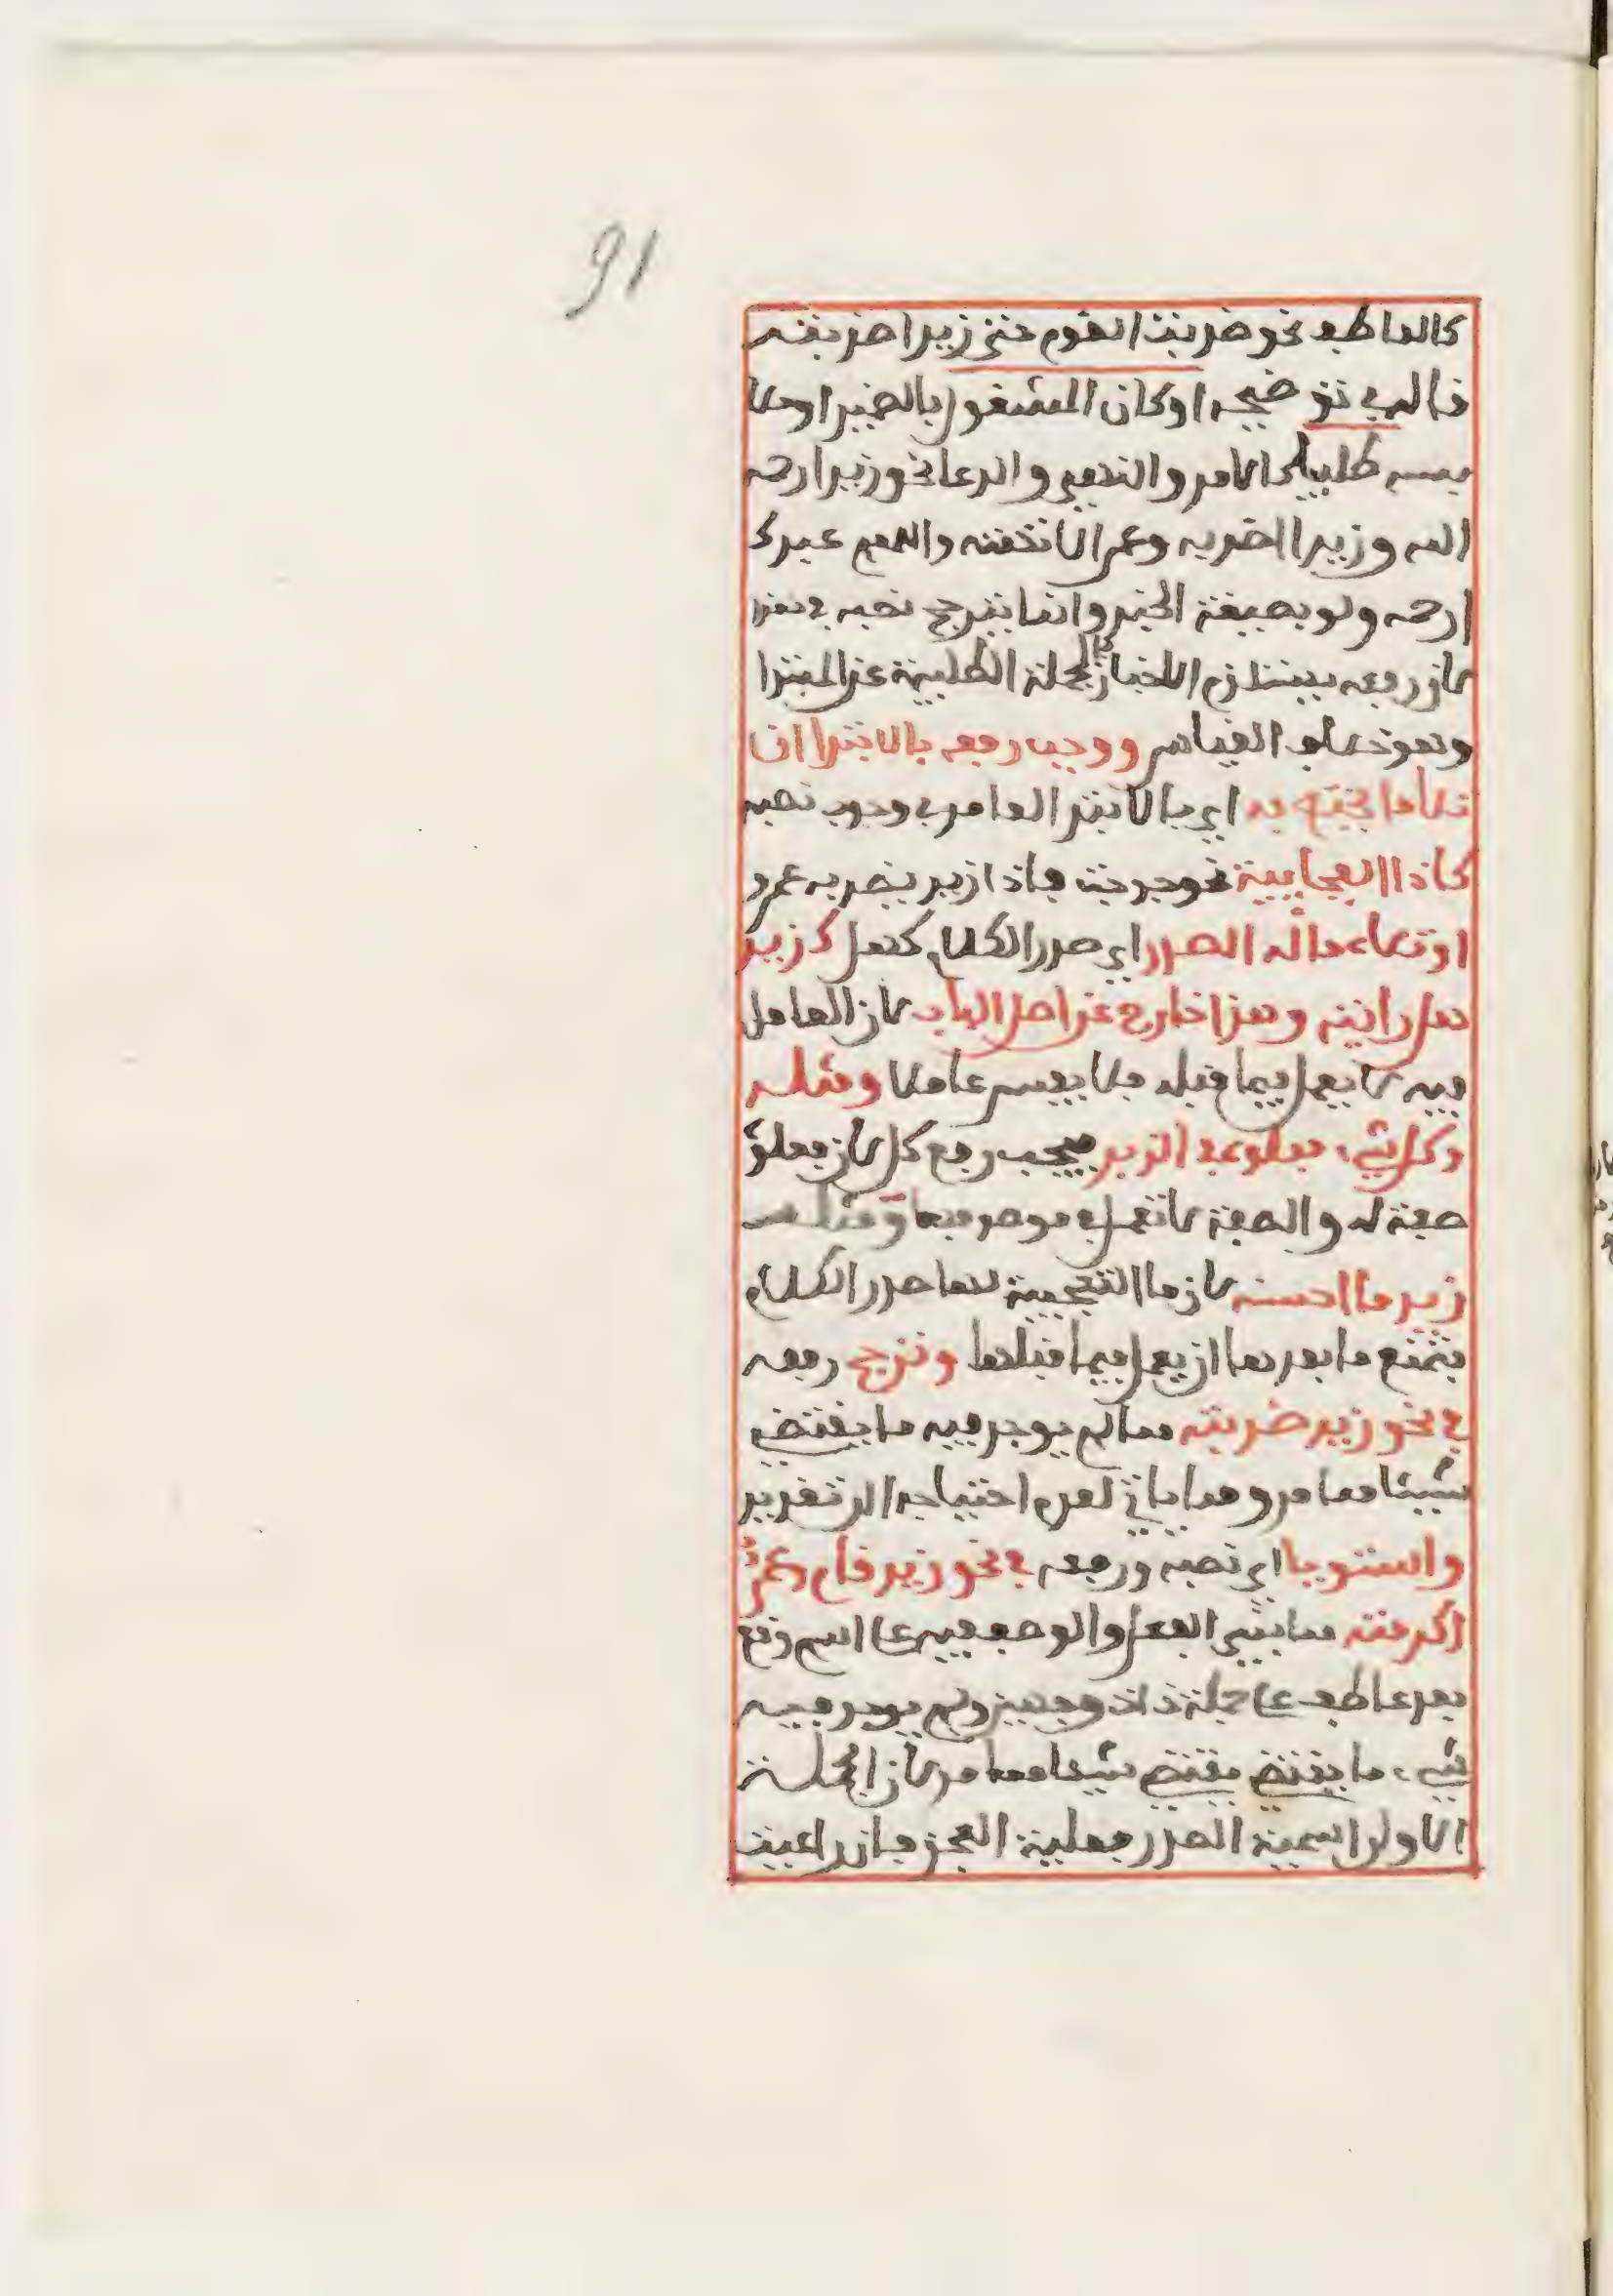 91
كالعاطف نحو ضربت القوم حتى زيدا ضربته
قاله في توضيحه او كان المشغول بالضمير اوملا
بسه طلبيا كالامر والنهي والدعا نحو زيدا رحمه
الله وزيدا اضربه وعمرا لا تهنه واللهم عبدك
ارحمه ولو بصيغة الخبر وانما يترجح نصبه في هذا
لان رفعه يستلزم الاخبار بالجملة الطلبية عن المبتدا
وهو خلاف القياس ووجب رفعه بالابتدا ان
تلا ما يختص به اي بالابتدا لعا مر في وجوب نصبه
كاذا الفجايية نحو خرجت فاذا زيد يضربه عمرو
او تلاه ما له الصدر اي صدر الكلام كهل كزيد
هل رايته وهذا خارج عن اصل الباب لان العامل
فيه لا يعمل فيما قبله فلا يفسر عاملا ومثله
وكل شيء فعلوه في الزبر فيجب رفع كل لان فعلوه
صفة له والصفة لا تعمل في موصوفها ومثله
زيد ما احسنه لان ما التعجبية لها صدر الكلام
فيمتنع ما بعدها ان يعمل فيما قبلها وترجح رفعه
في نحو زيد ضربته مما لم يوجد فيه ما يقتضي
شيئا مما مر ومما ياتي لعدم احتياجه الى تقدير
واستويا اي نصبه ورفعه في نحو زيد قام وعمرو
اكرمته مما بني الفعل والوصف فيه على اسم وقع
بعد عاطف على جملة ذات وجهين ولم يوجد فيه
شيء ما يقتضي يقتضي شيئا مما مر لان الجملة
الاولى اسمية الصدر فعلية العجز فان راعيت